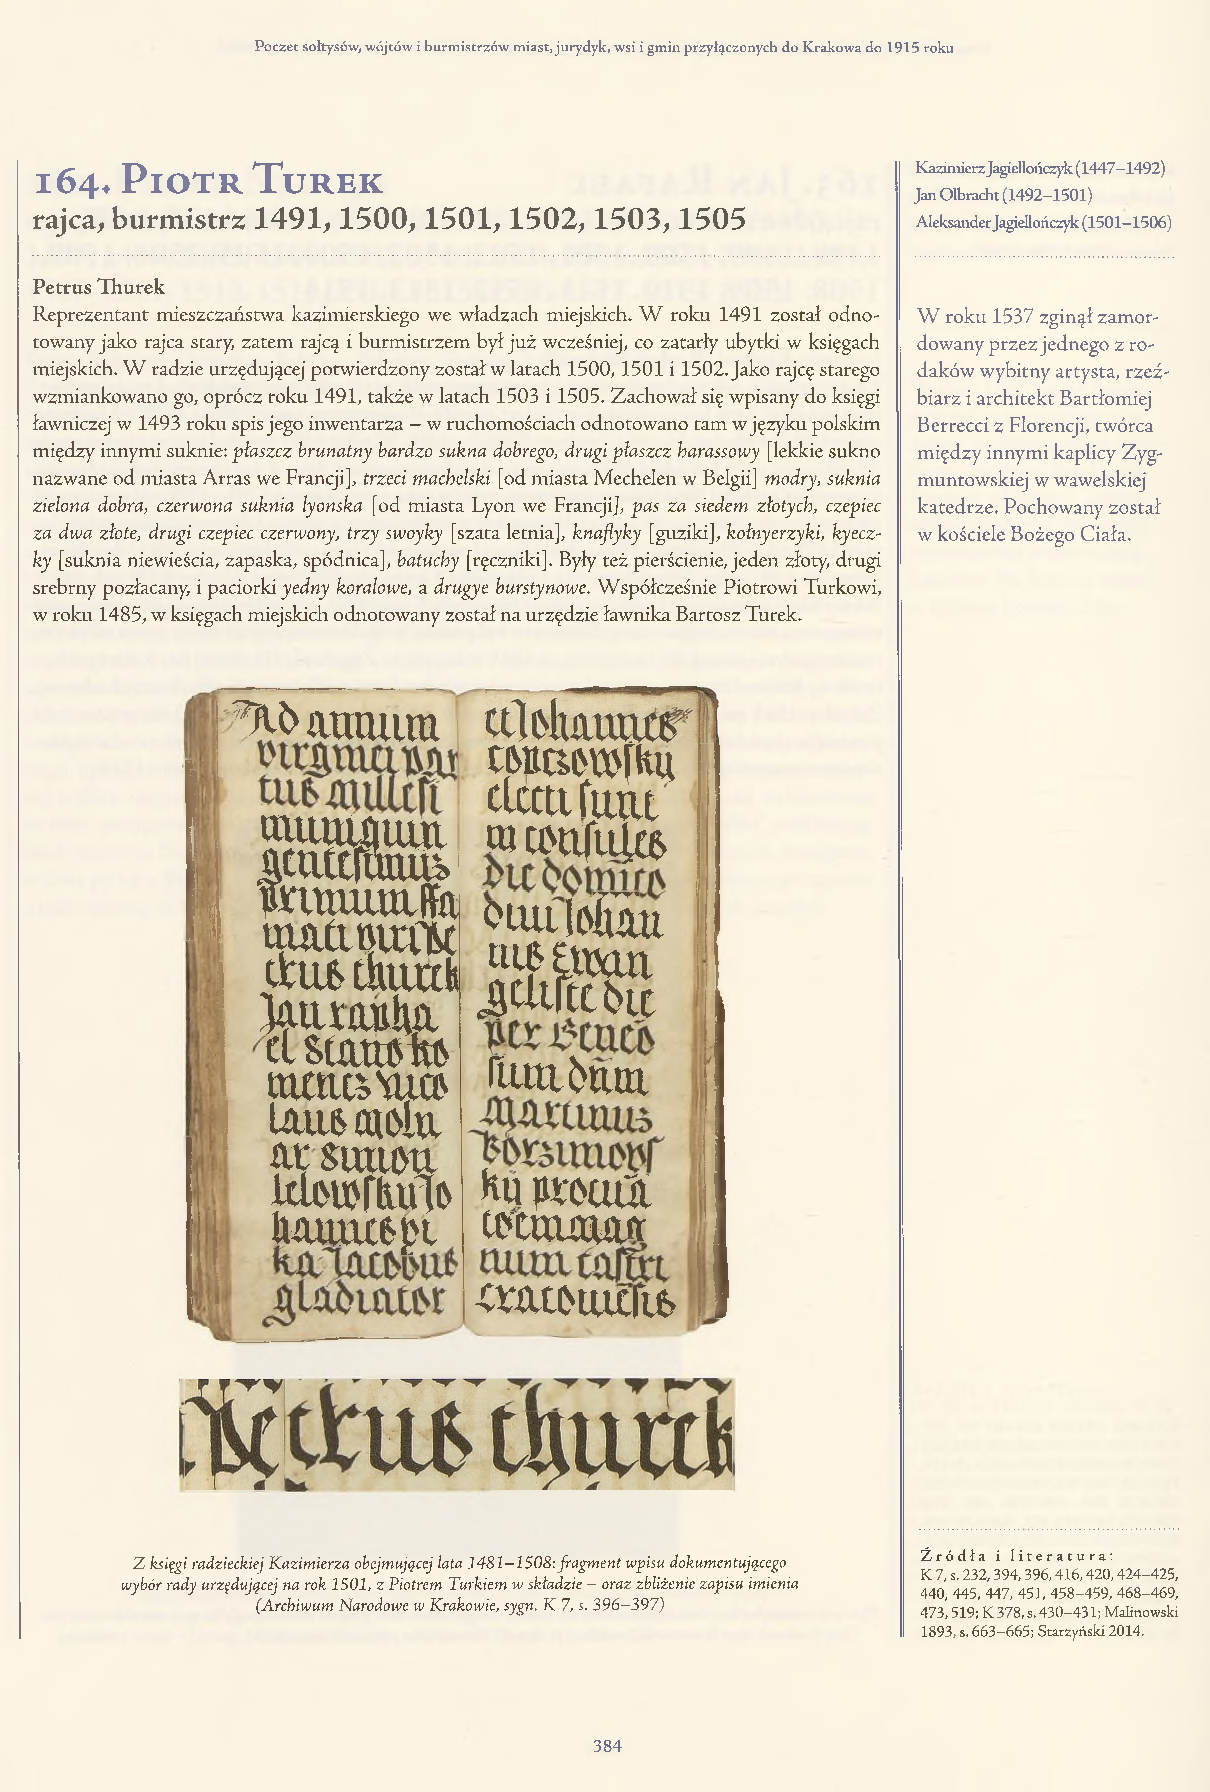 Poczet sołtysów, wójtów i burmistrzów miast, jurydyk, wsi i gmin przyłączonych do Krakowa do 1915 roku
164. Piotr Turek
rajca, burmistrz 1491, 1500, 1501, 1502, 1503, 1505
Petrus Thurek
Reprezentant mieszczaństwa kazimierskiego we władzach miejskich. W roku 1491 został odno-
towany jako rajca stary, zatem rajcą i burmistrzem był już wcześniej, co zatarły ubytki w księgach
miejskich. W radzie urzędującej potwierdzony został w latach 1500, 1501 i 1502. Jako rajcę starego
wzmiankowano go, oprócz roku 1491, także w latach 1503 i 1505. Zachował się wpisany do księgi
ławniczej w 1493 roku spis jego inwentarza – w ruchomościach odnotowano tam w języku polskim
między innymi suknie: płaszcz brunatny bardzo sukna dobrego, drugi płaszcz harassowy [lekkie sukno
nazwane od miasta Arras we Francji], trzeci machelski [od miasta Mechelen w Belgii] modry, suknia
zielona dobra, czerwona suknia lyonska [od miasta Lyon we Francji], pas za siedem złotych, czepiec
za dwa złote, drugi czepiec czerwony, trzy swoyky [szata letnia], knaflyky [guziki], kołnyerzyki, kyecz-
ky [suknia niewieścia, zapaska, spódnica], batuchy [ręczniki]. Były też pierścienie, jeden złoty, drugi
srebrny pozłacany, i paciorki yedny koralowe, a drugye burstynowe. Współcześnie Piotrowi Turkowi,
w roku 1485, w księgach miejskich odnotowany został na urzędzie ławnika Bartosz Turek.
Ad annum
virginei par
tus millesi
mumquin
gentesimus
primum ffa
mati viri Pe
trus thurek
Jan rapha
el Stano ko
mencz Nico
laus moln
ar Simon
lelowsky Jo
hannes pi
ka Jacobus
gladiator
et Johannes
electi sunt
in consules
die Johan
nis Ewan
geliste die
per Gener
sum dnm
Martinus
num castri
cracoviesis
Petrus thurek
Z księgi radzieckiej Kazimierza obejmującej lata 1481–1508: fragment wpisu dokumentującego
wybór rady urzędującej na rok 1501, z Piotrem Turkiem w składzie – oraz zbliżenie zapisu imienia
(Archiwum Narodowe w Krakowie, sygn. K 7, s. 396–397)
Kazimierz Jagiellończyk (1447–1492)
Jan Olbracht (1492–1501)
Aleksander Jagiellończyk (1501–1506)
W roku 1537 zginął zamor-
dowany przez jednego z ro-
daków wybitny artysta, rzeź-
biarz i architekt Bartłomiej
Berrecci z Florencji, twórca
między innymi kaplicy Zyg-
muntowskiej w wawelskiej
katedrze. Pochowany został
w kościele Bożego Ciała.
Źródła i literatura:
K 7, s. 232, 394, 396, 416, 420, 424–425,
440, 445, 447, 451, 458–459, 468–469,
473, 519; K 378, s. 430–431; Malinowski
1893, s. 663–665; Starzyński 2014.
384